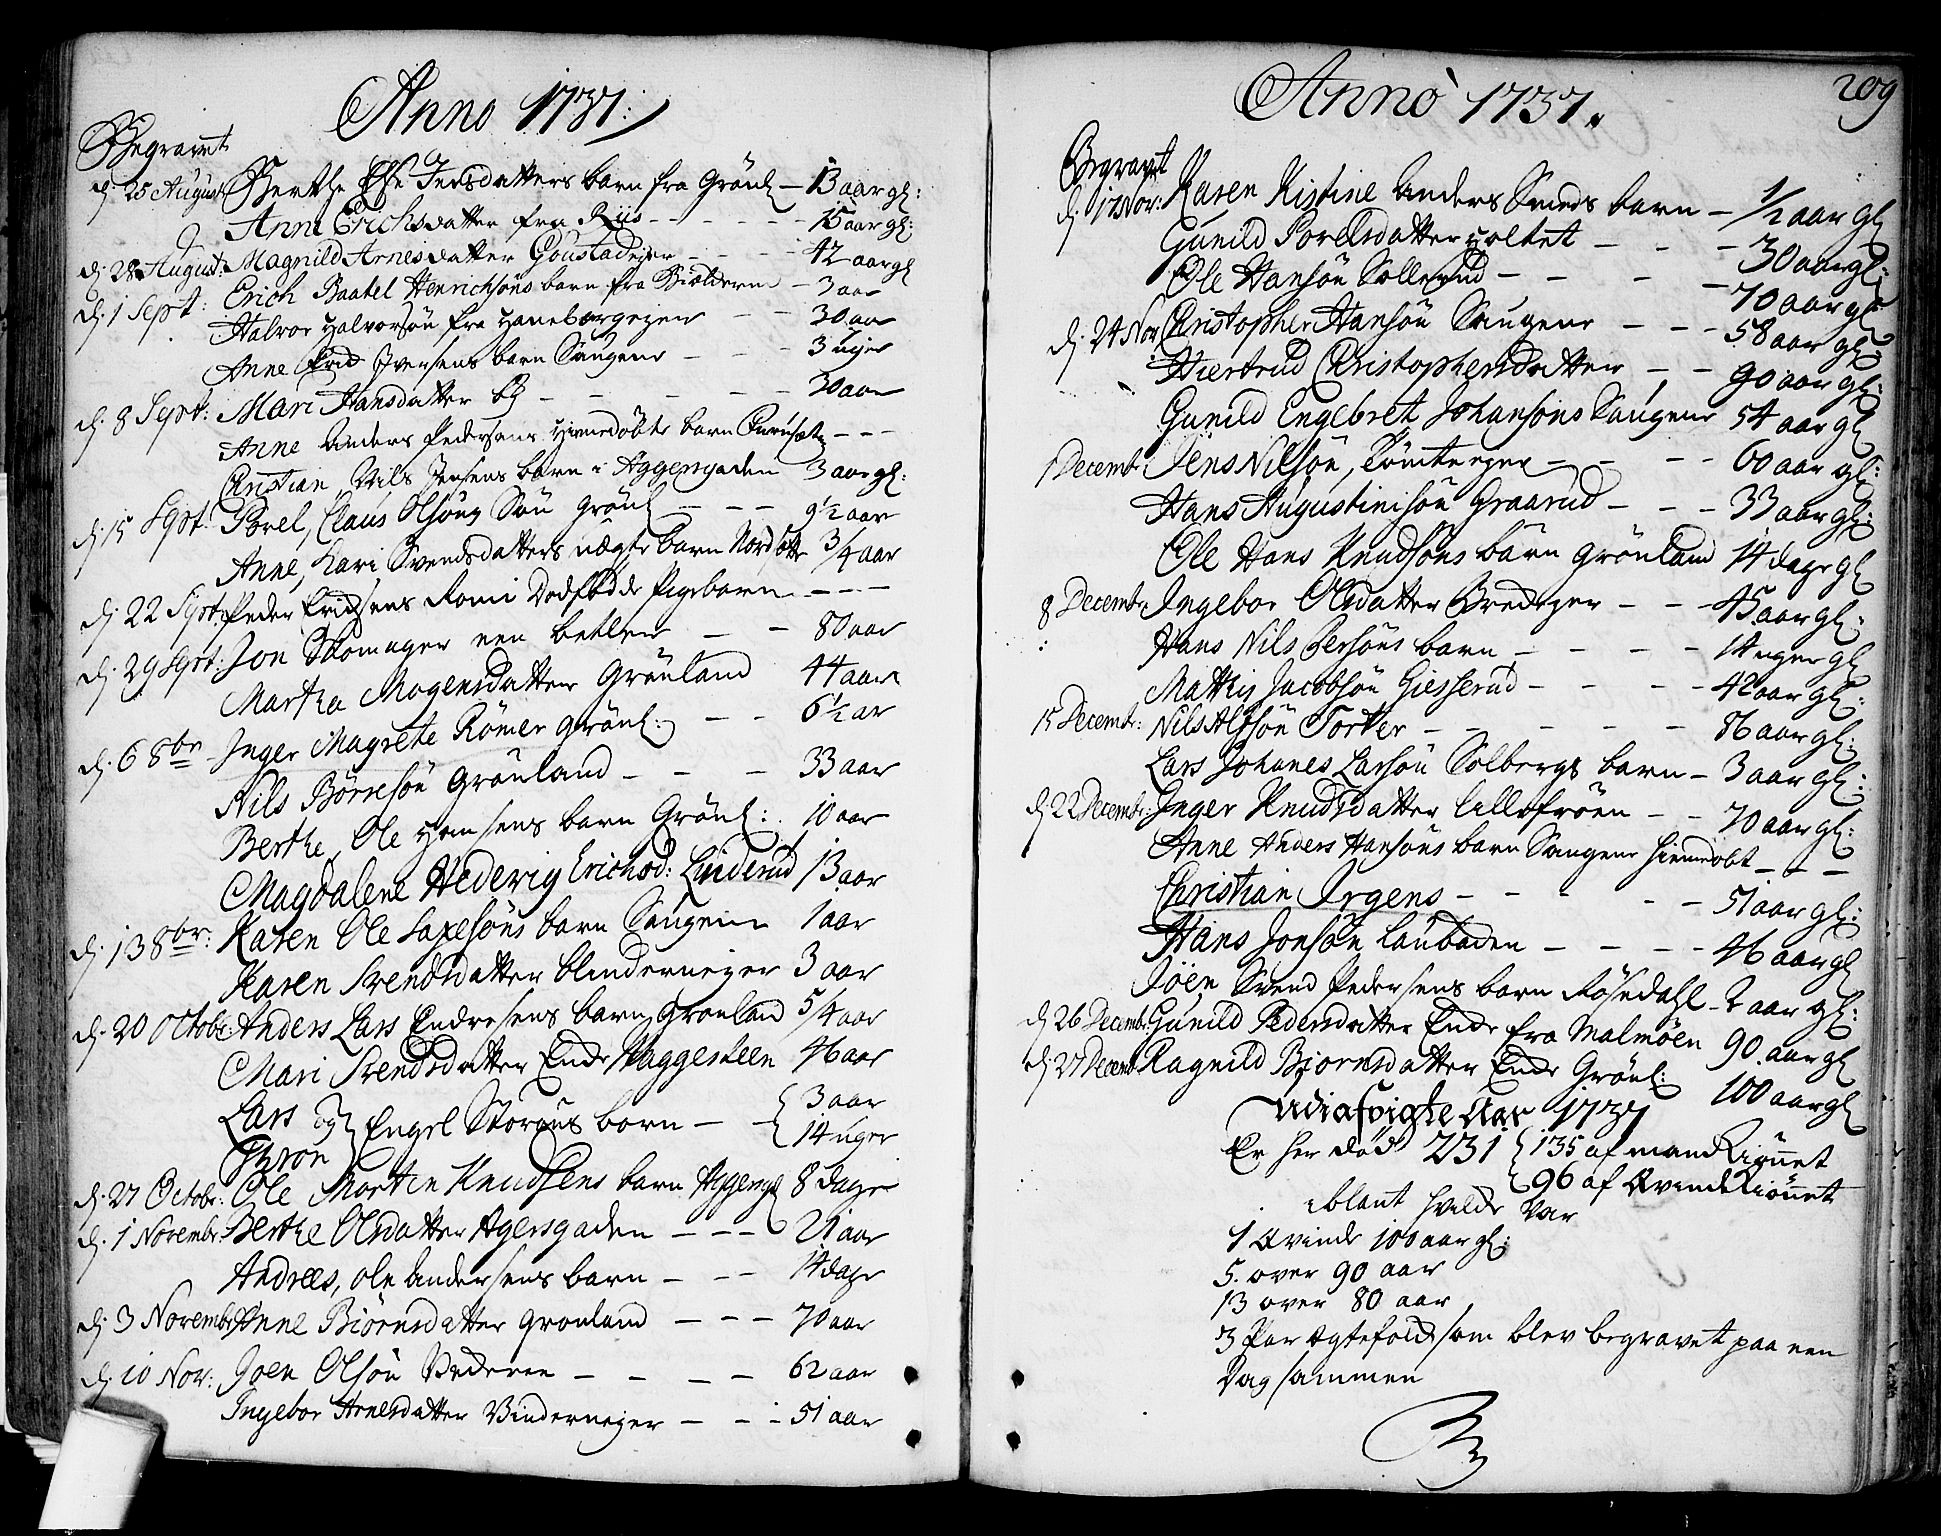 Anno 1737.
Begravet
d. 25 August Berthe Else Jensdatters barn fra Grönl – 13 aar gl:
Anne Erichsdatter fra Riis – – – 15 aar gl:
d. 28 August: Magnild Arnesdatter Goustadeyer – – 42 aar gl
d. 1 Sept: Erich Baatel Henrichsöns barn fra Biölderne – 3 aar
Halvor Halvorsön fra Haneborgeyen – – 30 aar
Anne Iversens barn Saugene – – – 3 uger
d. 8 Sept: Mari Hansdatter – – – – 30 aar
Anne Anders Pedersens Hiemedöbte barn – – –
Christian Nils Jensens barn i Aggersgaden 3 aar gl:
d. 15 Sept: Porel, Claus Olsöns Sön Grönl – – – 9½ aar
Anne, Kari Svendsdatters uægte barn 3/4 aar
d. 22 Sept: Peder Romi Dödfödde Pigebarn – – –
d. 29 Sept: Jon Skomager een betler – – 80 aar
Martha Mogensdatter Grönland 44 aar
d. 6 8br Inger Magrete Römer Grönl: – – 6½ ar
Nils Börresön Grönland – – – 33 aar
Berthe, Ole Hansens barn Grönl: 10 aar
Magdalene Hedevig Erichsd: Linderud 13 aar
d. 13 8br: Karen Ole Saxesöns barn Saugene 1 aar
Karen Svendsdatter Blinderneyer 3 aar
d. 20 Octobr: Anders Lars Endresens barn, Grønland 5/4 aar
Mari Svendsdatter Enke Vaggesteen 46 aar
Lars og Engel Storms born – – 3 aar
Gyron 14 uger
d. 27 Octobr: Ole Morten Knudsens barn Aggersg 8 dage
d. 1 Novembr: Berthe Olsdatter Agersgaden – – – 21 aar
Andrees, Ole Andersens barn – – – 14 dage
d. 3 Novembr Anne Biörnsdatter Gronland – – – 70 aar
d. 10 Nor: Joen Olsön Vederen – – – – 62 aar
Ingebor Arnesdatter Binderneyer – – – 51 aar
Anno 1737.
209
Begravt
d. 17 Nor: Karen Kistine Anders Smeds barn – 1/2 aar gl
Gunild Porelsdatter Holtet – – – 30 aar gl:
Ole Hansön Sollerud – – – – 70 aar gl
d. 24 Nor Christopher Hansön Saugene – – – 58 aar gl:
Hiertrud Christophersdatter – – 90 aar gl:
Gunild Engebret Johansöns Saugene 54 aar gl
1 Decembr: Jens Nilsön, Tömteeyer – – – – 60 aar gl:
Hans Augustinisön Graarud – – – 33 aar gl:
Ole Hans Knudsöns barn Grönland 14 dage gl
8 Decembr Ingebor Olsdatter Bredeyer – – – 45 aar gl:
Hans Nils Persöns barn – – – – 14 uger gl
Mathis Jacobsön Giesserud – – – – 42 aar gl:
15 Decembr: Nils Alfsön Torker – – – – – 86 aar gl:
Lars Johanes Larsön Solbergs barn – 3 aar gl:
d. 22 Decembr: Inger Knudsdatter Lillefröen – – 70 aar gl:
Anne Anders Hansöns barn Saugene hiemedobt – – –
Christian Jrgens – – – – – 51 aar gl:
Hans Jonsön Laubaden – – – – 46 aar gl
Jöen Svend Pedersens barn Rösedahl – 2 aar gl:
d. 26 Decembr: Gunild Pedersdatter Enke fra Malmöen 90 aar gl
d. 27 Decemb: Ragnild Biornsdatter Enke Grönl: 100 aar gl
Udi afvigte Aar 1737
Er her död 231 { 135 af mandKiönnet
{ 96 af QvindeKiönnet
iblant hvilde var
1 Qvinde 100 aar gl:
5. over 90 aar
13 over 80 aar
3 Par Egtefolk som blev begravet paa een
Dag sammen